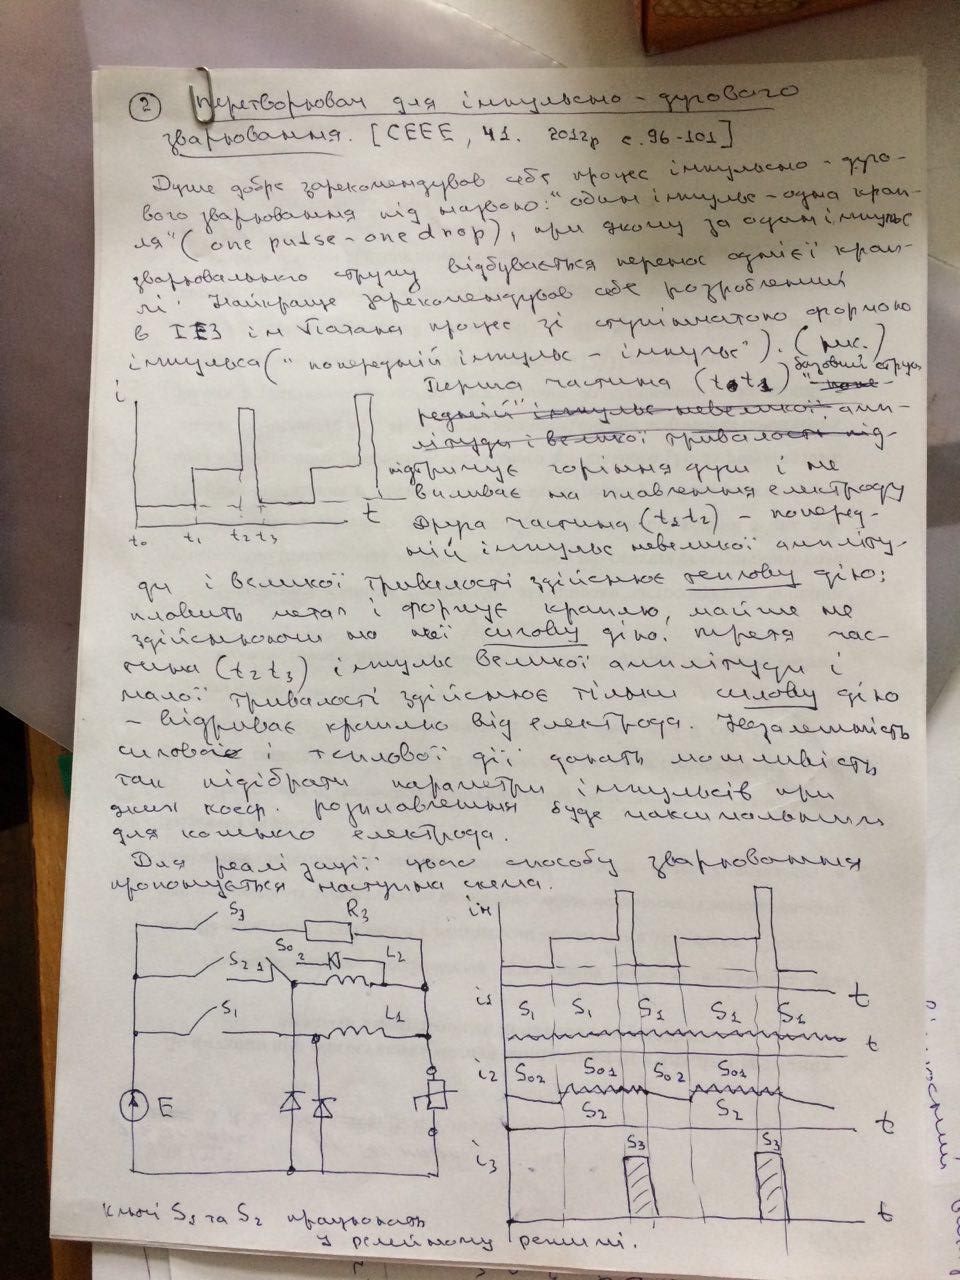 2 Перетворювач для імпульсно-дугового
зварювання. [СЕЕЕ, Ч1. 2012р с.96-101]
Дуже добре зарекомендував себе процес імпульсно-дуго-
вого зварювання під назвою: "один імпульс-одна крап-
ля" (one pulse-one drop), при якому за один імпульс
зварювального струму відбувається перенос однієї крап-
лі. Найкраще зарекомендував себе розроблений
в ІЕЗ ім Патона процес зі ступінчатою формою
імпульса ("попередній імпульс - імпульс"). (рис.)
Перша частина (t0t1) базовий струм
підтримує горіння дуги і не
впливає на плавлення електроду
Друга частина (t1t2) - поперед-
ній імпульс невеликої ампліту-
ди і великої тривалості здійснює теплову дію:
плавить метал і формує краплю, майже не
здійснюючи на неї силову дію. Третя час-
тина (t2t3) імпульс великої амплітуди і
малої тривалості здійснює тільки силову дію
- відриває краплю від електрода. Незалежність
силової і теплової дії дають можливість
так підібрати параметри імпульсів при
яких коеф. розплавлення буде максимальним
для кожного електрода.
Для реалізації цього способу зварювання
пропонується наступна схема.
i
t
t0 t1 t2 t3
S3 R3
S0 2 L2
S2 1
S1 L1
E
iн
t
i1
S1 S1 S1 S1 S1
t
i2
S02 S01 S02 S01
S2 S2
t
i3
S3 S3
t
Ключі S1 та S2 працюють
у релейному режимі.